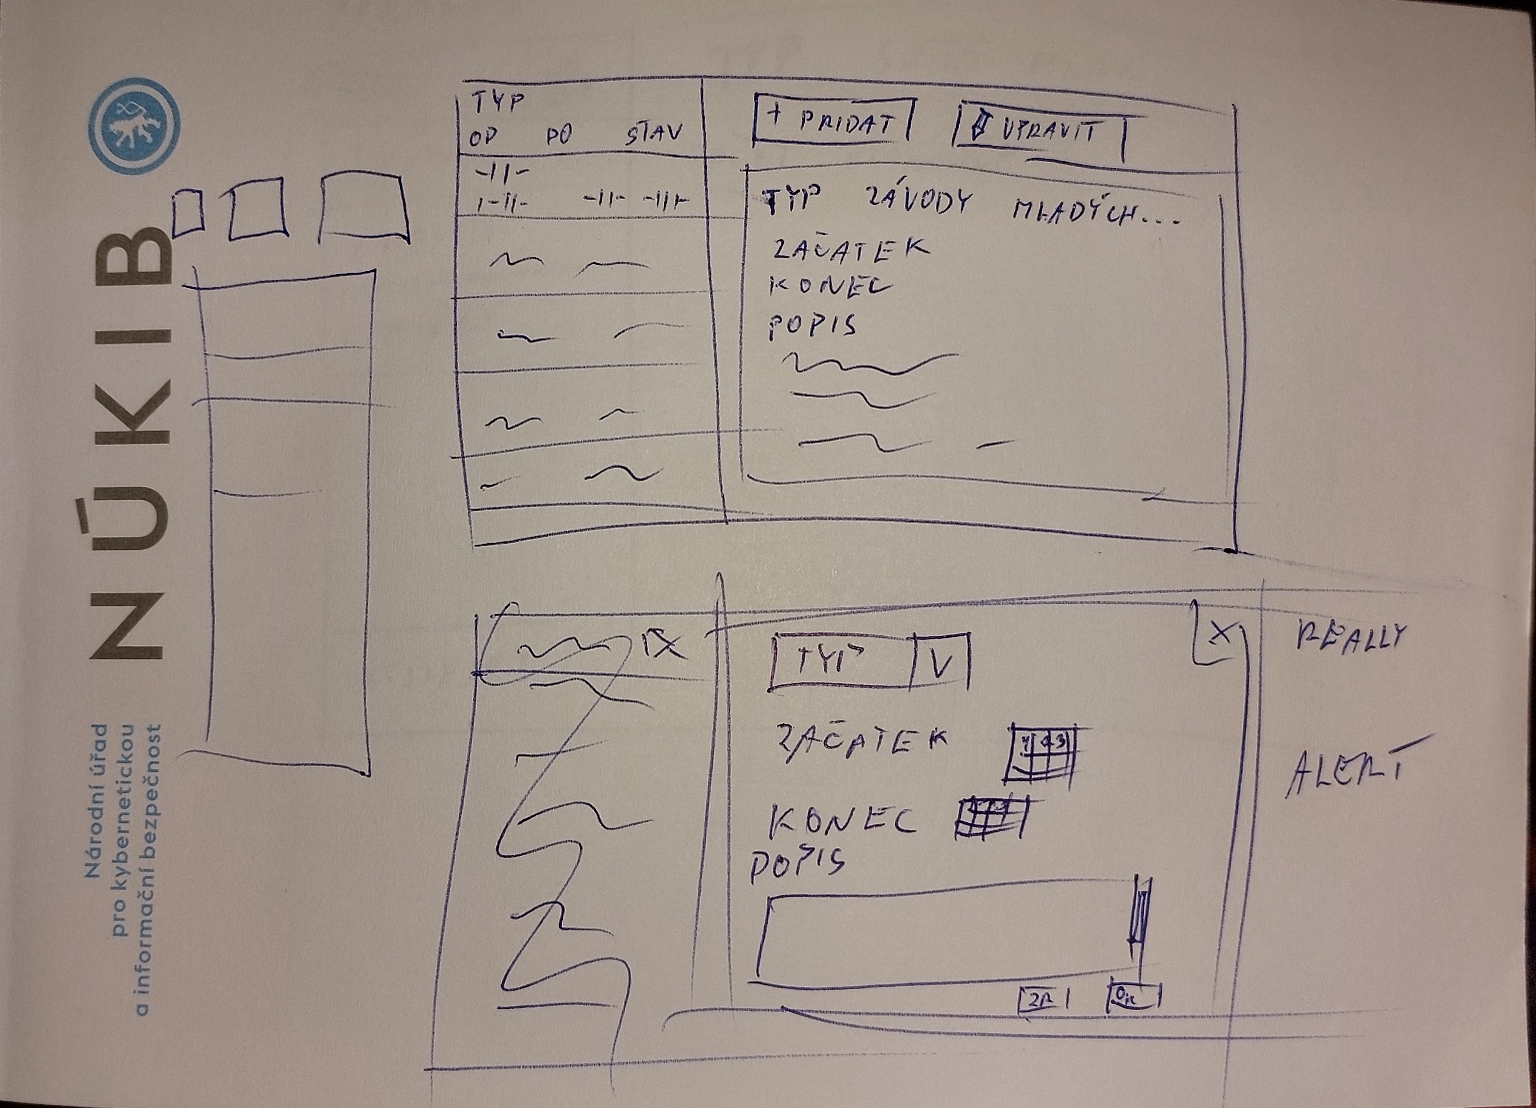 NÚKIB
Národní úřad
pro kybernetickou
a informační bezpečnost
TYP
OD PO STAV
+ PŘIDAT
UPRAVIT
TYP ZÁVODY MLADÝCH...
ZAČATEK
KONEC
POPIS
X
TYP V
X
ZAČATEK
KONEC
POPIS
ZR
OK
REALLY
ALERT